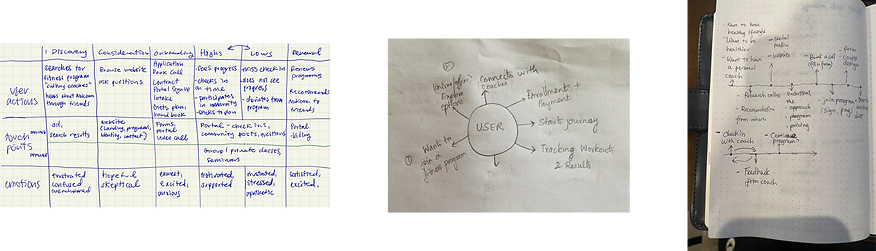 Discovery Consideration Onboarding Highs Lows Renewal
user
actions
searches for
fitness program
through friends
Browse website
ask questions
Application
Book Call
Contract
Portal Sign Up
Intake
Gets plan
hand book
- sees progress
- checks in
on time
- participates
in community
- sticks to plan
- miss check in
- does not see
progress
- deviates from
program
Renews
programs
Recommends
to friends
touch
points
ad,
search results
website
Forms,
Portal
Video call
Portal - check ins,
community posts,
Group / private classes,
Seminars
Portal
- billing
emotions
frustrated
confused
overwhelmed
hopeful
skeptical
earnest,
excited,
anxious
motivated,
supported
frustrated,
stressed,
apathetic
satisfied,
excited,
USER
①
Want to
join a
fitness program
②
Explore
options
Connects with
coaches
Enrollment +
Payment
Start journey
Tracking Workouts
& Results
- Want to have
healthy lifestyle
- Want to be
healthier
- Want to have
a personal
coach
- social
media
- website
- Book a call
- Research online
- Recommendation
from others
- Understand
the
approach
- program
- pricing
- join program
(sign, pay)
- Check in
with coach
- Continue
program?
- Feedback
from coach